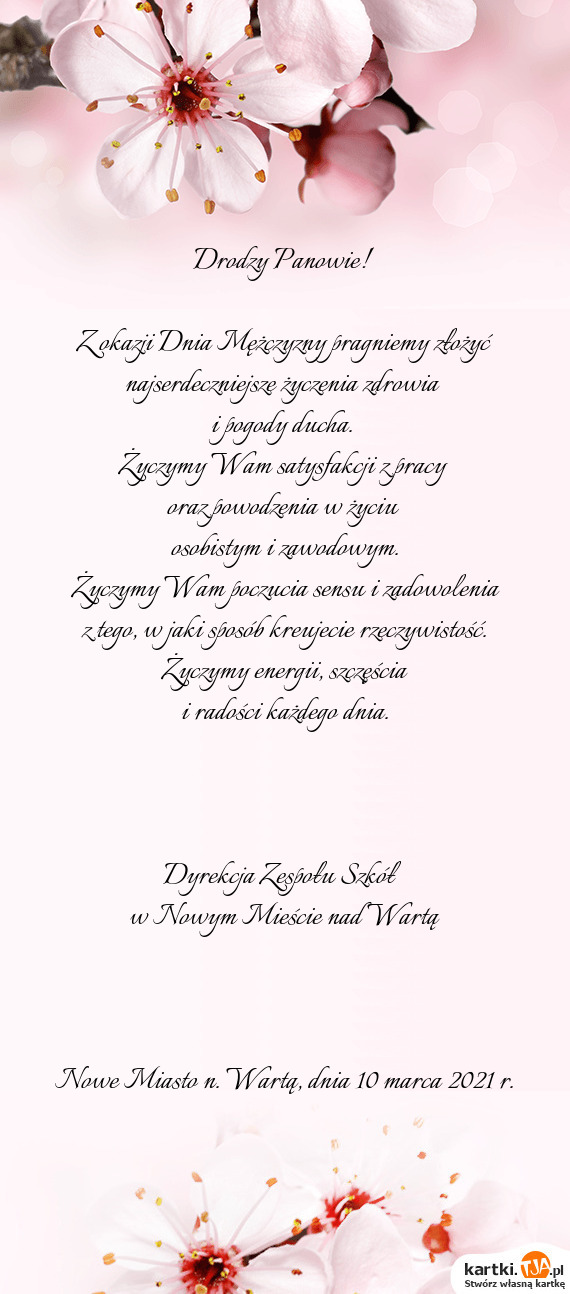 Drodzy Panowie!
Z okazji Dnia Mężczyzny pragniemy złożyć
najserdeczniejsze życzenia zdrowia
i pogody ducha.
Życzymy Wam satysfakcji z pracy
oraz powodzenia w życiu
osobistym i zawodowym.
Życzymy Wam poczucia sensu i zadowolenia
z tego, w jaki sposób kreujecie rzeczywistość.
Życzymy energii, szczęścia
i radości każdego dnia.
Dyrekcja Zespołu Szkół
w Nowym Mieście nad Wartą
Nowe Miasto n. Wartą, dnia 10 marca 2021 r.
kartki.TJA.pl
Stwórz własną kartkę